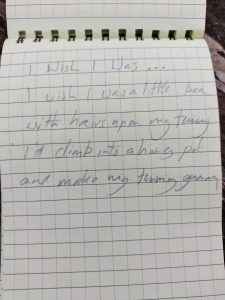 I wish I was ...
I wish I was a little bea
with hairs upm my tummy
I'd climb into a honey pot
and make my tummy gummy